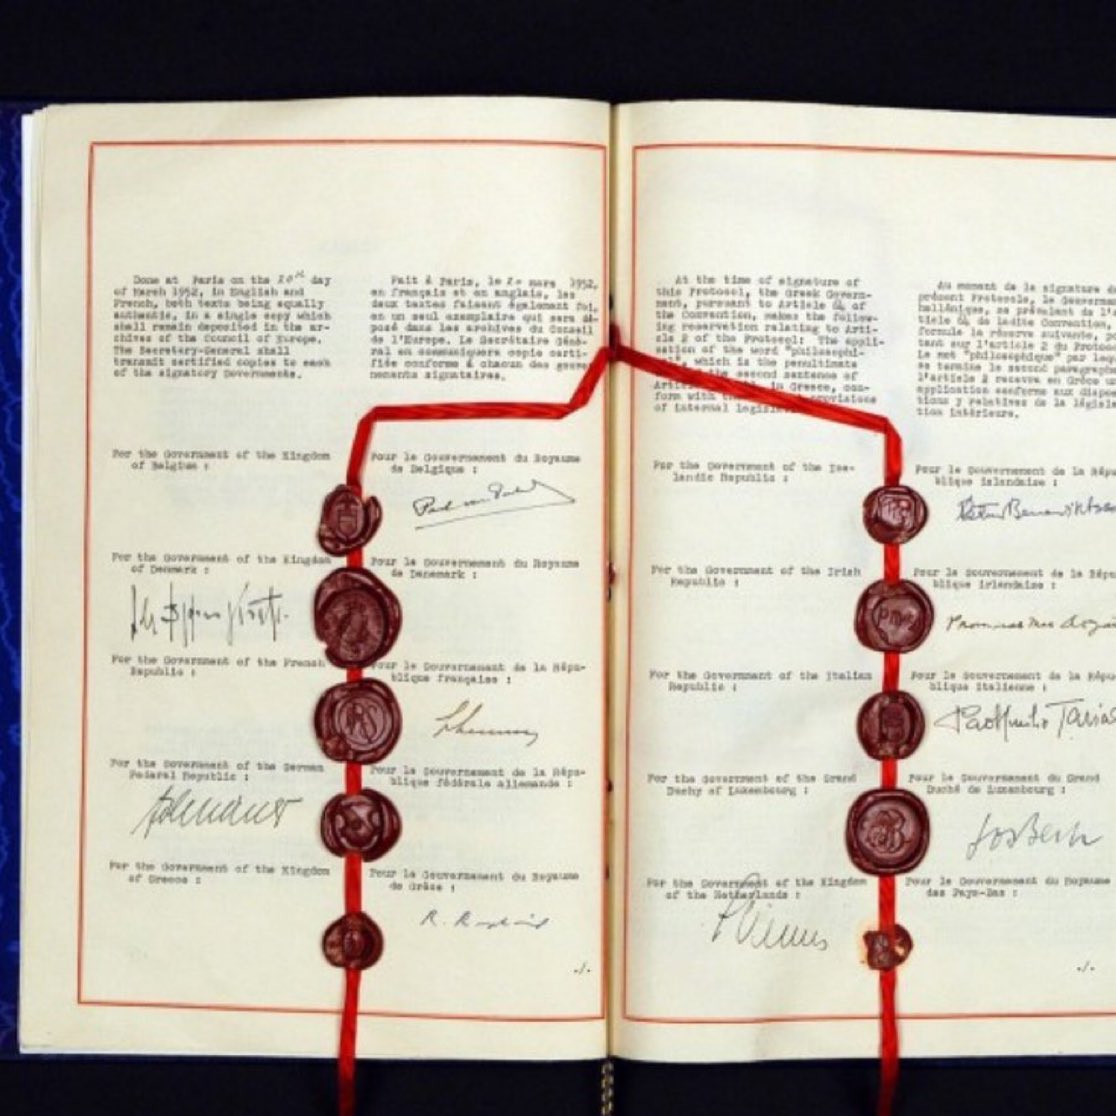 Done at Paris on the 20th day
of March 1952, in English and
French, both texts being equally
authentic, in a single copy which
shall remain deposited in the ar-
chives of the Council of Europe.
The Secretary-General shall
transmit certified copies to each
of the signatory Governments.
Fait à Paris, le 20 mars 1952,
en français et en anglais, les
deux textes faisant également foi,
en un seul exemplaire qui sera dé-
posé dans les archives du Conseil
de l'Europe. Le Secrétaire Géné-
ral en communiquera copie certi-
fiée conforme à chacun des gouver
nements signataires.
For the Government of the Kingdom
of Belgium :
Pour le Gouvernement du Royaume
de Belgique :
For the Government of the Kingdom
of Denmark :
Pour le Gouvernement du Royaume
de Danemark :
For the Government of the French
Republic :
Pour le Gouvernement de la Répu-
blique française :
For the Government of the German
Federal Republic :
Pour le Gouvernement de la Répu-
blique fédérale allemande :
For the Government of the Kingdom
of Greece :
Pour le Gouvernement du Royaume
de Grèce :
./.
At the time of signature of
this Protocol, the Greek Govern-
ment, pursuant to Article 64 of
the Convention, makes the follow-
ing reservation relating to Arti-
cle 2 of the Protocol: The appli-
cation of the word "philosophi-
which is the penultimate
the second sentence of
in Greece, con-
form with provisions
of internal
Au moment de la signature d
présent Protocole, le Gouverne
hellénique, se prévalant de l'
ticle 64 de ladite Convention,
formule la réserve suivante, po
tant sur l'article 2 du Protoco
Le mot "philosophique" par leq
se termine le second paragraphe
l'article 2 recevra en Grèce u
application conforme aux dispo
tions y relatives de la législa
tion intérieure.
For the Government of the Ice-
landic Republic :
Pour le Gouvernement de la Répu
blique islandaise :
For the Government of the Irish
Republic :
Pour le Gouvernement de la Répu
blique irlandaise :
For the Government of the Italian
Republic :
Pour le Gouvernement de la Répu
blique italienne :
For the Government of the Grand
Duchy of Luxembourg :
Pour le Gouvernement du Grand
Duché de Luxembourg :
Jos Bech
For the Government of the Kingdom
of the Netherlands :
Pour le Gouvernement du Royaume
des Pays-Bas :
./.